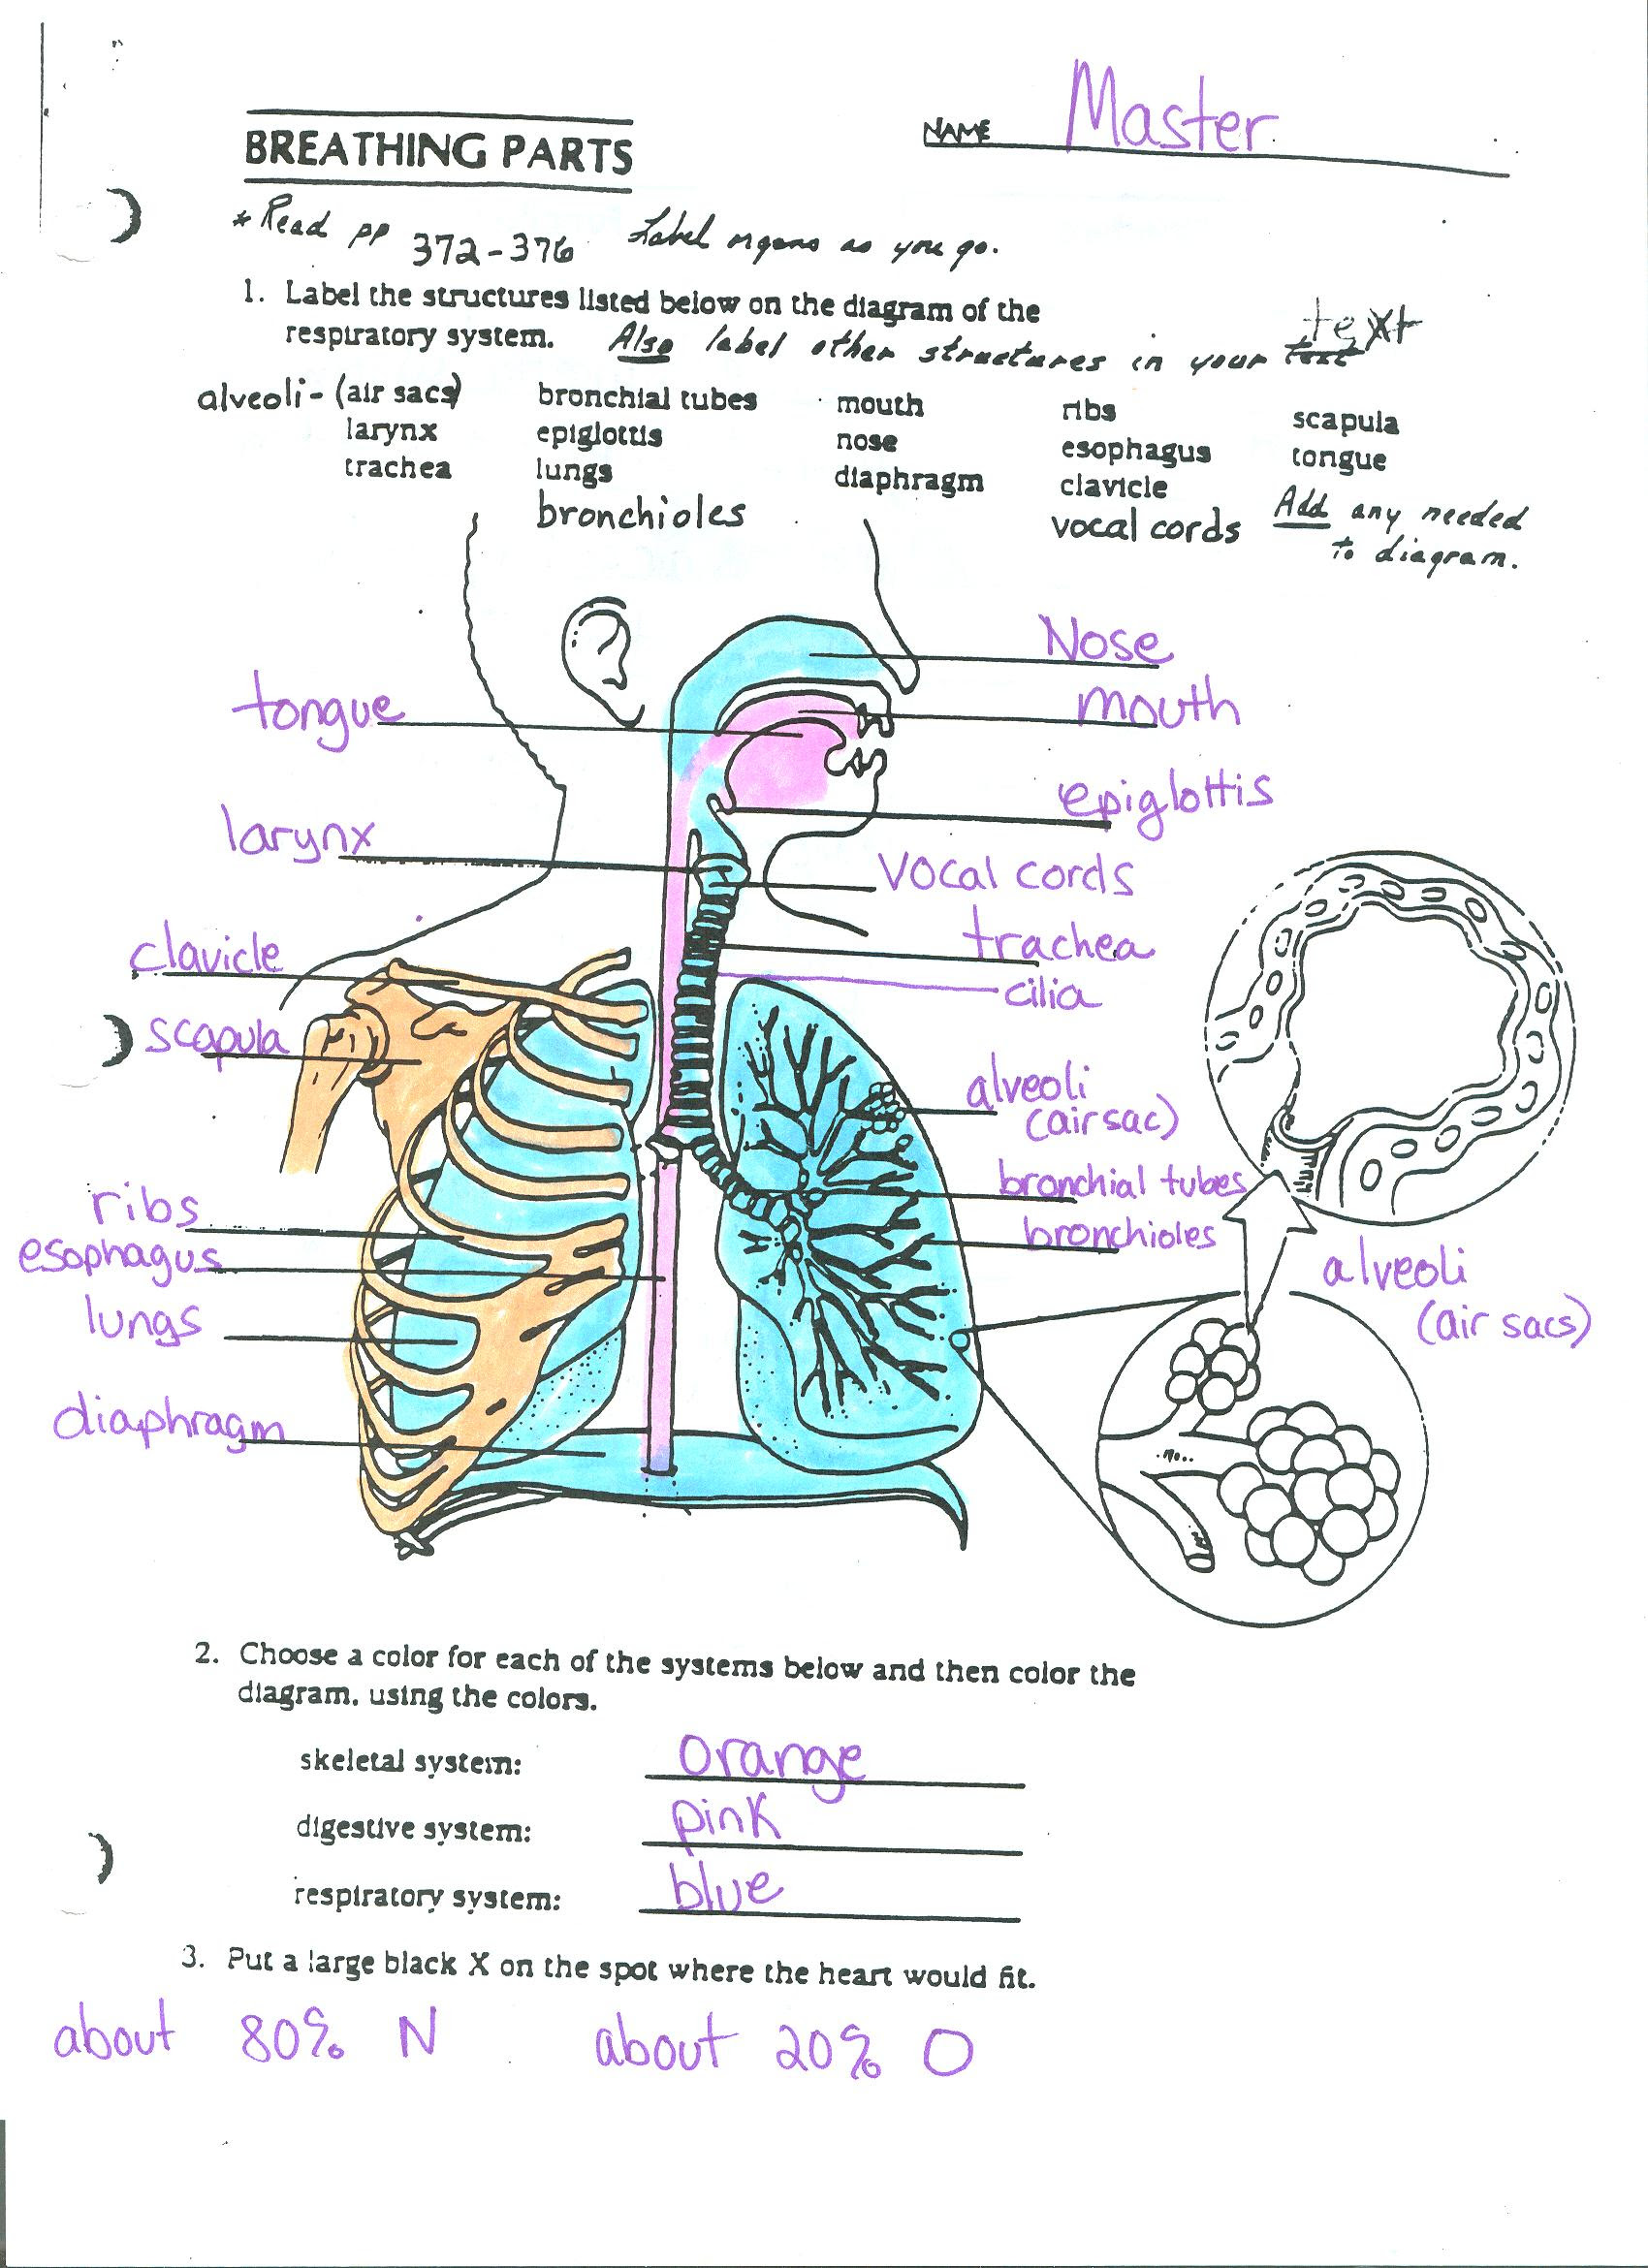 NAME Master
BREATHING PARTS
* Read pp 372-376 Label organs as you go.
1. Label the structures listed below on the diagram of the
respiratory system. Also label other structures in your text text
alveoli- (air sacs) bronchial tubes mouth ribs scapula
larynx epiglottis nose esophagus tongue
trachea lungs diaphragm clavicle
bronchioles vocal cords
Add any needed
to diagram.
Nose
tongue mouth
epiglottis
larynx
vocal cords
clavicle trachea
cilia
scapula
alveoli
(air sac)
bronchial tubes
ribs bronchioles
esophagus
alveoli
(air sacs)
lungs
diaphragm
2. Choose a color for each of the systems below and then color the
diagram, using the colors.
skeletal system: orange
digestive system: pink
respiratory system: blue
3. Put a large black X on the spot where the heart would fit.
about 80% N about 20% O